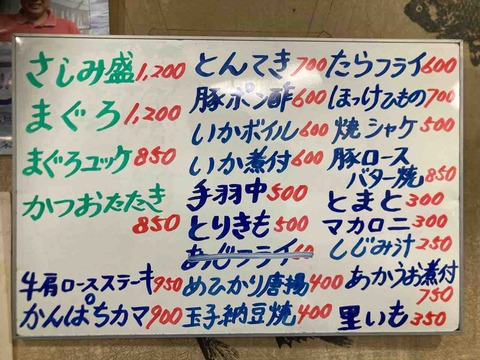 さしみ盛 1,200
まぐろ 1,200
まぐろユッケ 850
かつおたたき
850
牛肩ロースステーキ 950
かんぱちカマ 900
とんてき 700
豚ポン酢 600
いかボイル 600
いか煮付 600
手羽中 500
とりきも 500
あじフライ 60
めひかり唐揚 400
玉子納豆焼 400
たらフライ 600
ほっけひもの 700
焼シャケ 500
豚ロース
バター焼 850
とまと 300
マカロニ 300
しじみ汁 250
あかうお煮付
750
里いも 350